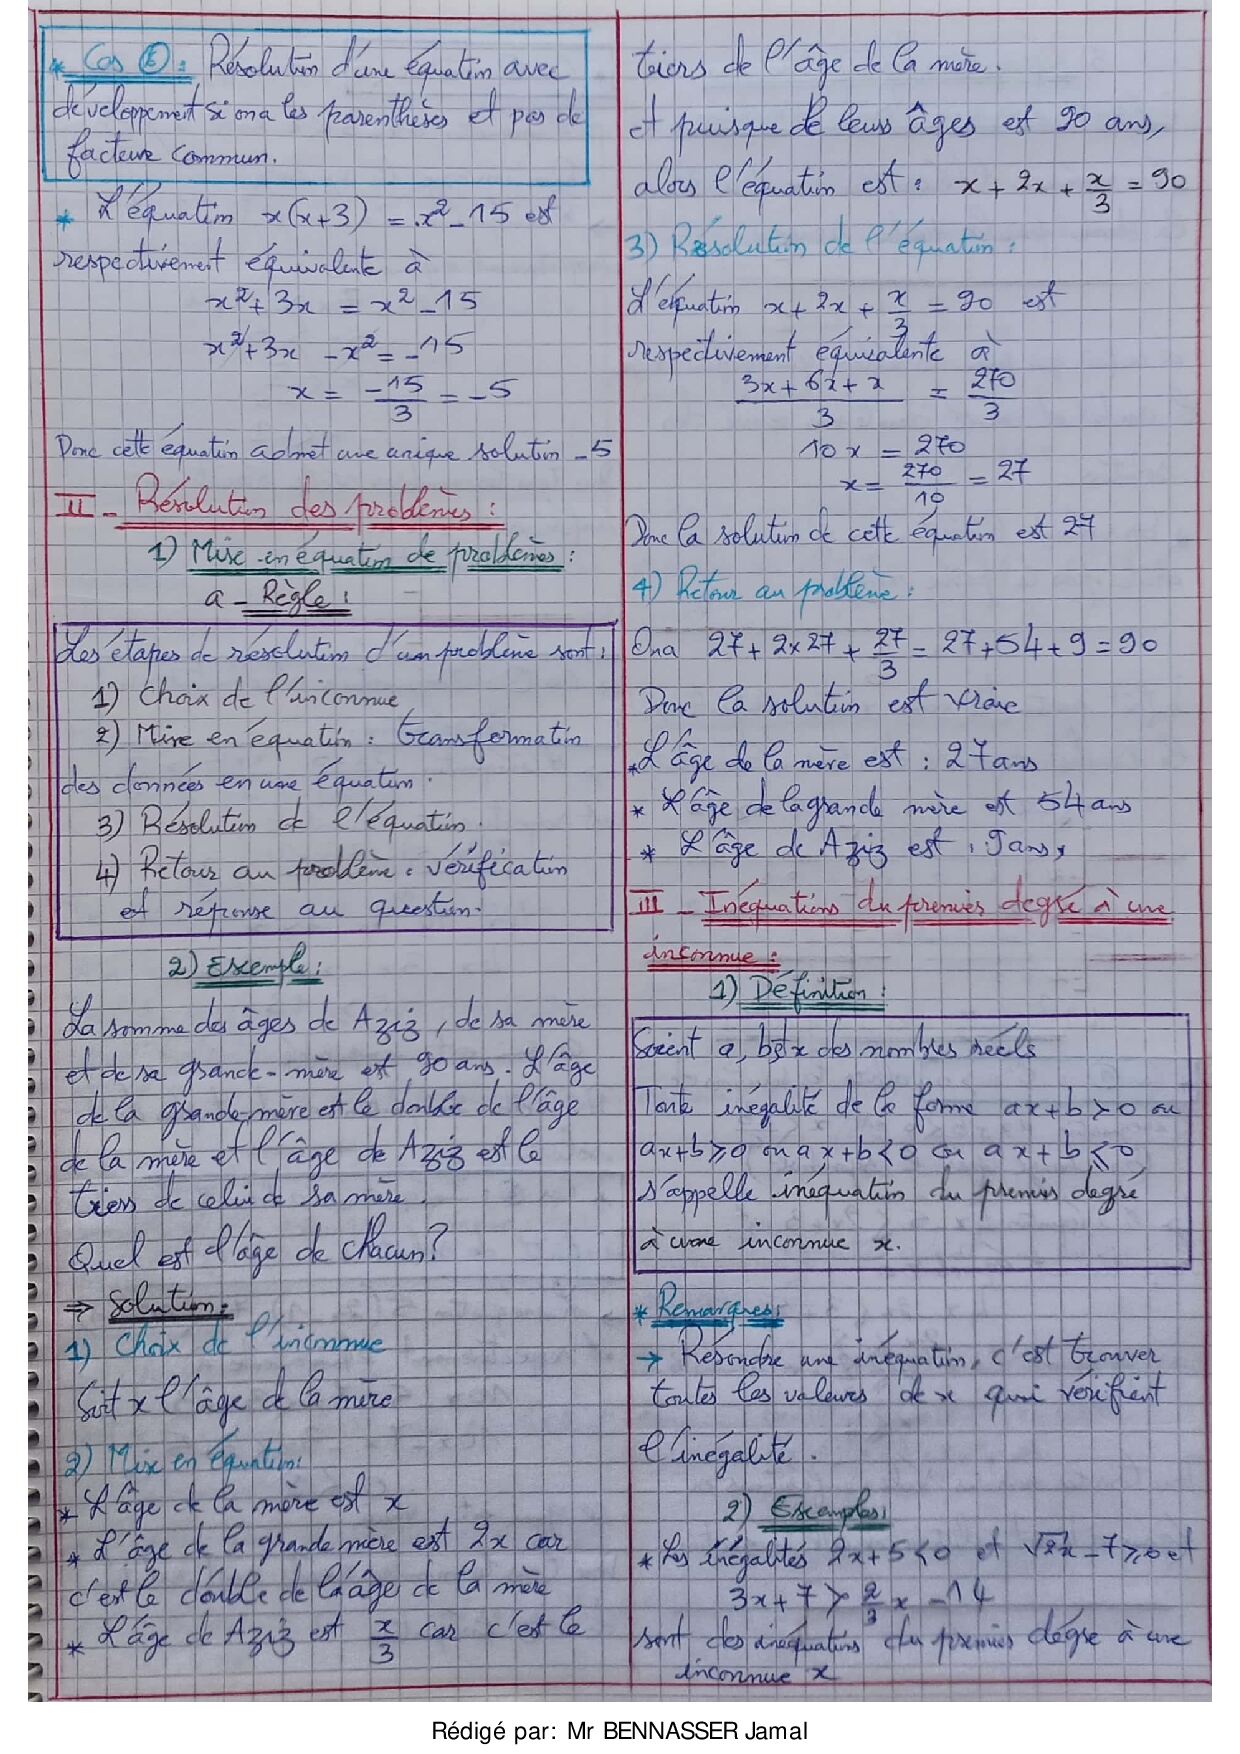 * Cas ②: Résolution d'une équation avec
développement si on a les parenthèses et pas de
facteur commun.
* L'équation x(x+3) = x² - 15 est
respectivement équivalente à
x² + 3x = x² - 15
x² + 3x - x² = -15
x = -15/3 = -5
Donc cette équation admet une unique solution -5
II - Résolution des problèmes :
1) Mise en équation de problèmes :
a - Règle :
Les étapes de résolution d'un problème sont :
1) Choix de l'inconnue
2) Mise en équation : transformation
des données en une équation.
3) Résolution de l'équation.
4) Retour au problème : vérification
et réponse au question.
2) Exemple :
La somme des âges de Aziz, de sa mère
et de sa grande-mère est 90 ans. L'âge
de la grande mère est le double de l'âge
de la mère et l'âge de Aziz est le
tiers de celui de sa mère.
Quel est l'âge de chacun ?
⇒ Solution :
1) Choix de l'inconnue
Soit x l'âge de la mère
2) Mise en équation :
* L'âge de la mère est x
* L'âge de la grande mère est 2x car
c'est le double de l'âge de la mère
* L'âge de Aziz est x/3 car c'est le
tiers de l'âge de la mère.
et puisque de leurs âges est 90 ans,
alors l'équation est : x + 2x + x/3 = 90
3) Résolution de l'équation :
L'équation x + 2x + x/3 = 90 est
respectivement équivalente à
(3x + 6x + x)/3 = 270/3
10x = 270
x = 270/10 = 27
Donc la solution de cette équation est 27
4) Retour au problème :
On a 27 + 2×27 + 27/3 = 27 + 54 + 9 = 90
Donc la solution est vraie
* L'âge de la mère est : 27 ans
* L'âge de la grande mère est 54 ans
* L'âge de Aziz est : 9 ans,
III - Inéquations du premier degré à une
inconnue :
1) Définition :
Soient a, b et x des nombres réels
Toute inégalité de la forme ax+b > 0 ou
ax+b ≥ 0 ou ax+b < 0 ou ax+b ≤ 0
s'appelle inéquation du premier degré
à une inconnue x.
* Remarques :
→ Résoudre une inéquation, c'est trouver
toutes les valeurs de x qui vérifient
l'inégalité.
2) Exemples :
* Les inégalités 2x+5 < 0 et √2x - 7 ≥ 0 et
3x + 7 > 2/3 x - 14
sont des inéquations du premier degré à une
inconnue x
Rédigé par: Mr BENNASSER Jamal